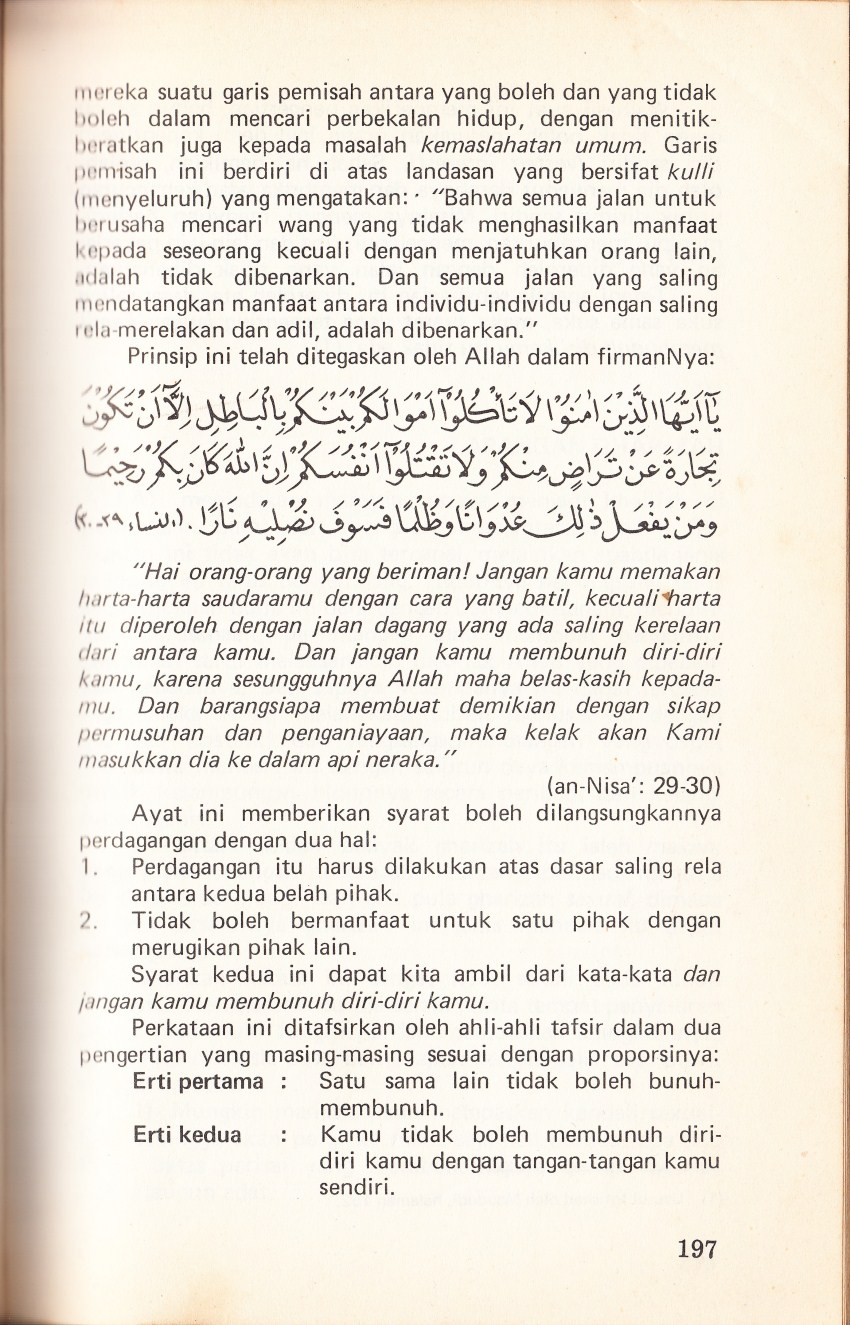 mereka suatu garis pemisah antara yang boleh dan yang tidak
boleh dalam mencari perbekalan hidup, dengan menitik-
beratkan juga kepada masalah kemaslahatan umum. Garis
pemisah ini berdiri di atas landasan yang bersifat kulli
(menyeluruh) yang mengatakan: "Bahwa semua jalan untuk
berusaha mencari wang yang tidak menghasilkan manfaat
kepada seseorang kecuali dengan menjatuhkan orang lain,
adalah tidak dibenarkan. Dan semua jalan yang saling
mendatangkan manfaat antara individu-individu dengan saling
rela-merelakan dan adil, adalah dibenarkan."
Prinsip ini telah ditegaskan oleh Allah dalam firmanNya:
يَآاَيُّهَا الَّذِيْنَ اٰمَنُوْا لَا تَأْكُلُوْآ اَمْوَالَكُمْ بَيْنَكُمْ بِالْبَاطِلِ اِلَّآ اَنْ تَكُوْنَ
تِجَارَةً عَنْ تَرَاضٍ مِنْكُمْ وَلَا تَقْتُلُوْآ اَنْفُسَكُمْ اِنَّ اللّٰهَ كَانَ بِكُمْ رَحِيْمًا
وَمَنْ يَفْعَلْ ذٰلِكَ عُدْوَانًا وَظُلْمًا فَسَوْفَ نُصْلِيْهِ نَارًا. (النساء ٢٩-٣٠)
"Hai orang-orang yang beriman! Jangan kamu memakan
harta-harta saudaramu dengan cara yang batil, kecuali harta
itu diperoleh dengan jalan dagang yang ada saling kerelaan
dari antara kamu. Dan jangan kamu membunuh diri-diri
kamu, karena sesungguhnya Allah maha belas-kasih kepada-
mu. Dan barangsiapa membuat demikian dengan sikap
permusuhan dan penganiayaan, maka kelak akan Kami
masukkan dia ke dalam api neraka."
(an-Nisa': 29-30)
Ayat ini memberikan syarat boleh dilangsungkannya
perdagangan dengan dua hal:
1. Perdagangan itu harus dilakukan atas dasar saling rela
antara kedua belah pihak.
2. Tidak boleh bermanfaat untuk satu pihak dengan
merugikan pihak lain.
Syarat kedua ini dapat kita ambil dari kata-kata dan
jangan kamu membunuh diri-diri kamu.
Perkataan ini ditafsirkan oleh ahli-ahli tafsir dalam dua
pengertian yang masing-masing sesuai dengan proporsinya:
Erti pertama : Satu sama lain tidak boleh bunuh-
membunuh.
Erti kedua : Kamu tidak boleh membunuh diri-
diri kamu dengan tangan-tangan kamu
sendiri.
197